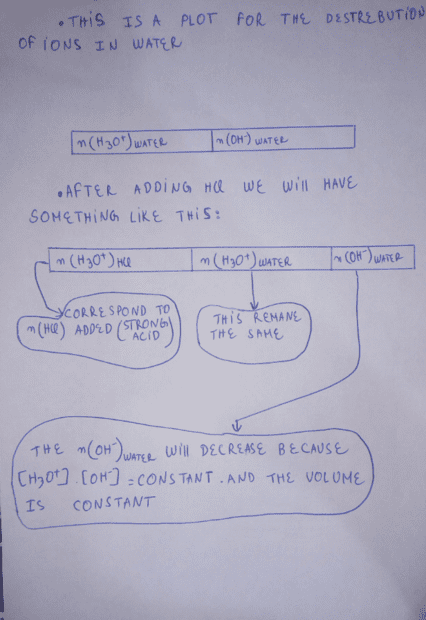 • THIS IS A PLOT FOR THE DESTREBUTION
OF IONS IN WATER
n(H3O+)WATER n(OH-) WATER
• AFTER ADDING HCl WE Will HAVE
SOMETHING LIKE THIS:
n(H3O+)HCl n(H3O+)WATER n(OH-)WATER
CORRESPOND TO
n(HCl) ADDED (STRONG
ACID)
THIS REMANE
THE SAME
THE n(OH-)WATER Will DECREASE BECAUSE
[H3O+].[OH-] = CONSTANT. AND THE VOLUME
IS CONSTANT